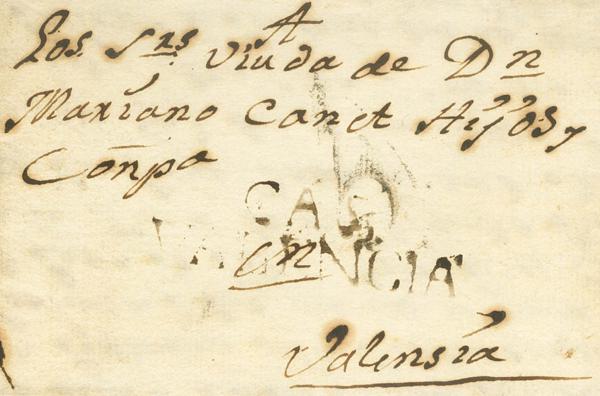 A
Los. Srs. Viuda de Dn
Mariano Canet Hijos y
Compa
CAS
VALENCIA
en
Valensia